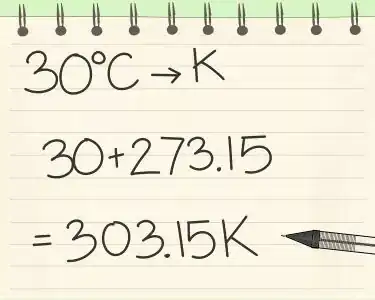 30°C → K
30+273.15
= 303.15K